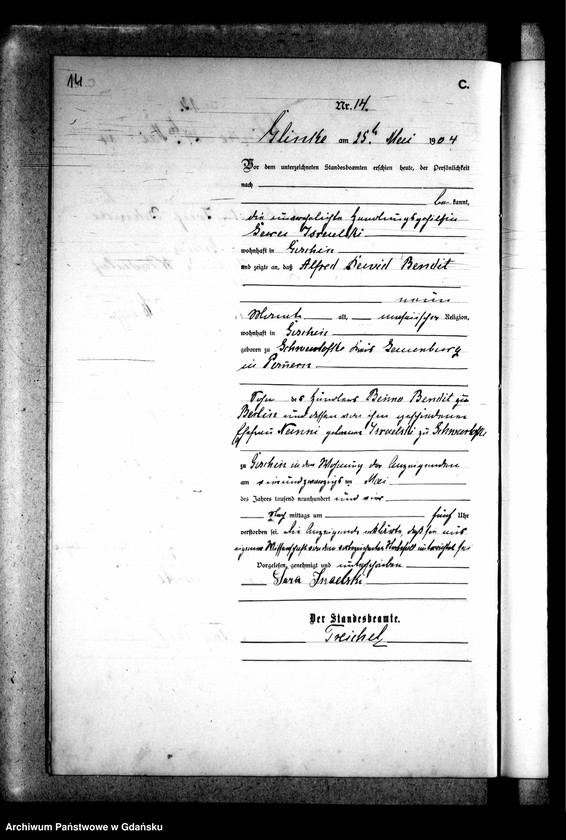 14
C.
Nr. 14.
Glinke am 25ten Mai 1904
Vor dem unterzeichneten Standesbeamten erschien heute, der Persönlichkeit
nach
be kannt,
die unverehelichte Handlungsgehilfin
Israelski
wohnhaft in
und zeigte an, daß Alfred David Bendit
neun
Monate alt, mosaischer Religion,
wohnhaft in
geboren zu Kreis
in Pommern
Sohn des Händlers Benno Bendit zu
Berlin und dessen von ihm geschiedenen
Ehefrau geborene Israelski zu
zu in der Wohnung der Anzeigenden
am Mai
des Jahres tausend neunhundert und vier
Nach mittags um fünf Uhr
verstorben sei. Die Anzeigende erklärte, daß sie aus
eigener Wissenschaft von dem unterrichtet sei
Vorgelesen, genehmigt und unterschrieben
Sara Israelski
Der Standesbeamte.
Treichel
Archiwum Państwowe w Gdańsku